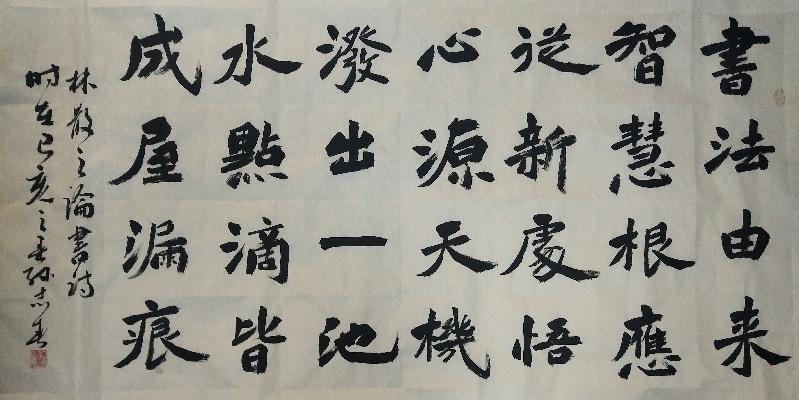 書法由来
智慧根應
從新處悟
心源天機
潑出一池
水點滴皆
成屋漏痕
林散之論書詩
时在己亥之春